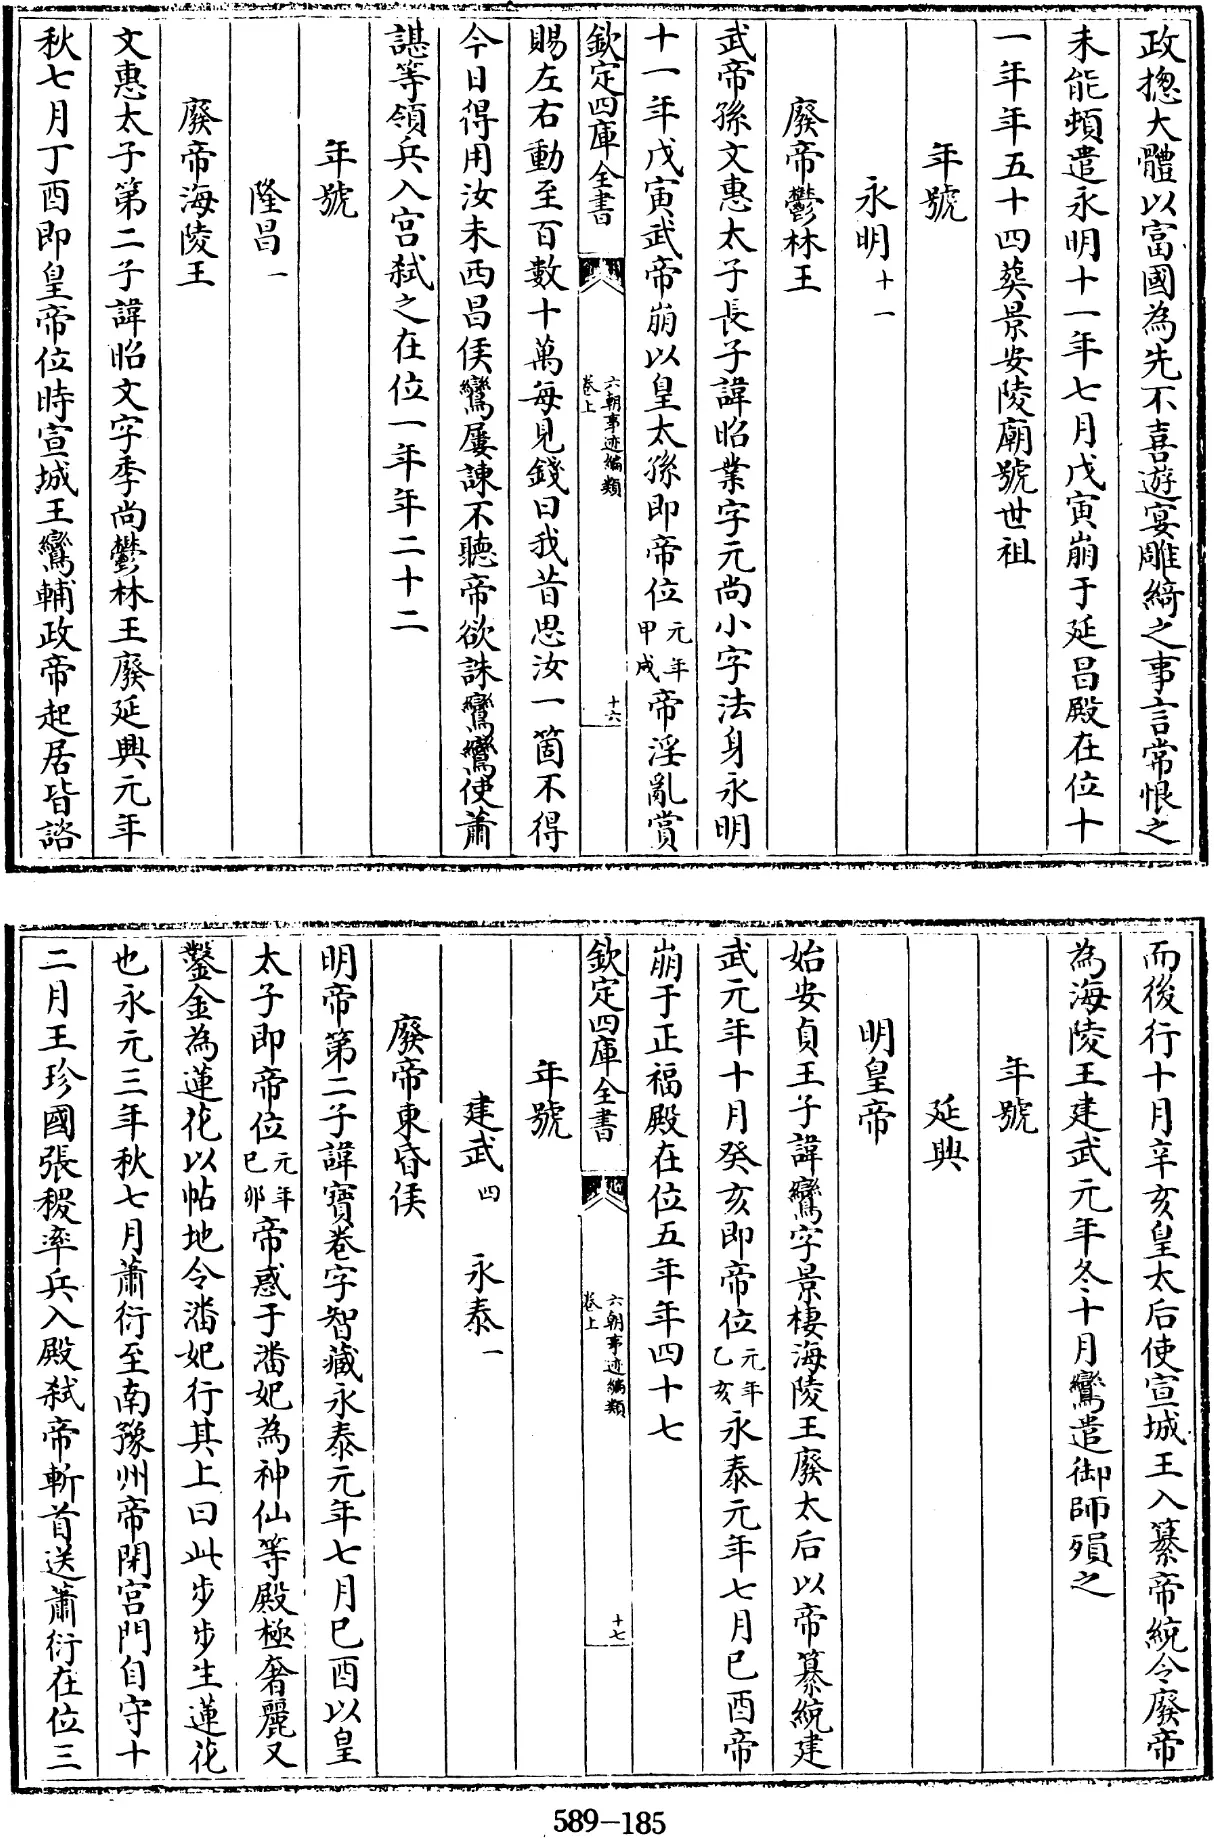 政摠大體以富國為先不喜遊宴雕綺之事言常恨之
未能頓遣永明十一年七月戊寅崩于延昌殿在位十
一年年五十四葬景安陵廟號世祖
年號
永明十一
廢帝鬱林王
武帝孫文惠太子長子諱昭業字元尚小字法身永明
十一年戊寅武帝崩以皇太孫即帝位元年甲戌帝淫亂賞
欽定四庫全書 六朝事迹編類卷上 十六
賜左右動至百數十萬每見錢曰我昔思汝一箇不得
今日得用汝未西昌侯鸞屢諫不聽帝欲誅鸞鸞使蕭
諶等領兵入宮弑之在位一年年二十二
年號
隆昌一
廢帝海陵王
文惠太子第二子諱昭文字季尚鬱林王廢延興元年
秋七月丁酉即皇帝位時宣城王鸞輔政帝起居皆諮
而後行十月辛亥皇太后使宣城王入纂帝統令廢帝
為海陵王建武元年冬十月鸞遣御師殞之
年號
延興
明皇帝
始安貞王子諱鸞字景棲海陵王廢太后以帝纂統建
武元年十月癸亥即帝位元年乙亥永泰元年七月已酉帝
崩于正福殿在位五年年四十七
欽定四庫全書 六朝事迹編類卷上 十七
年號
建武四 永泰一
廢帝東昏侯
明帝第二子諱寶卷字智藏永泰元年七月已酉以皇
太子即帝位元年已卯帝惑于潘妃為神仙等殿極奢麗又
鑿金為蓮花以帖地令潘妃行其上曰此步步生蓮花
也永元三年秋七月蕭衍至南豫州帝閉宮門自守十
二月王珍國張稷率兵入殿弑帝斬首送蕭衍在位三
589-185